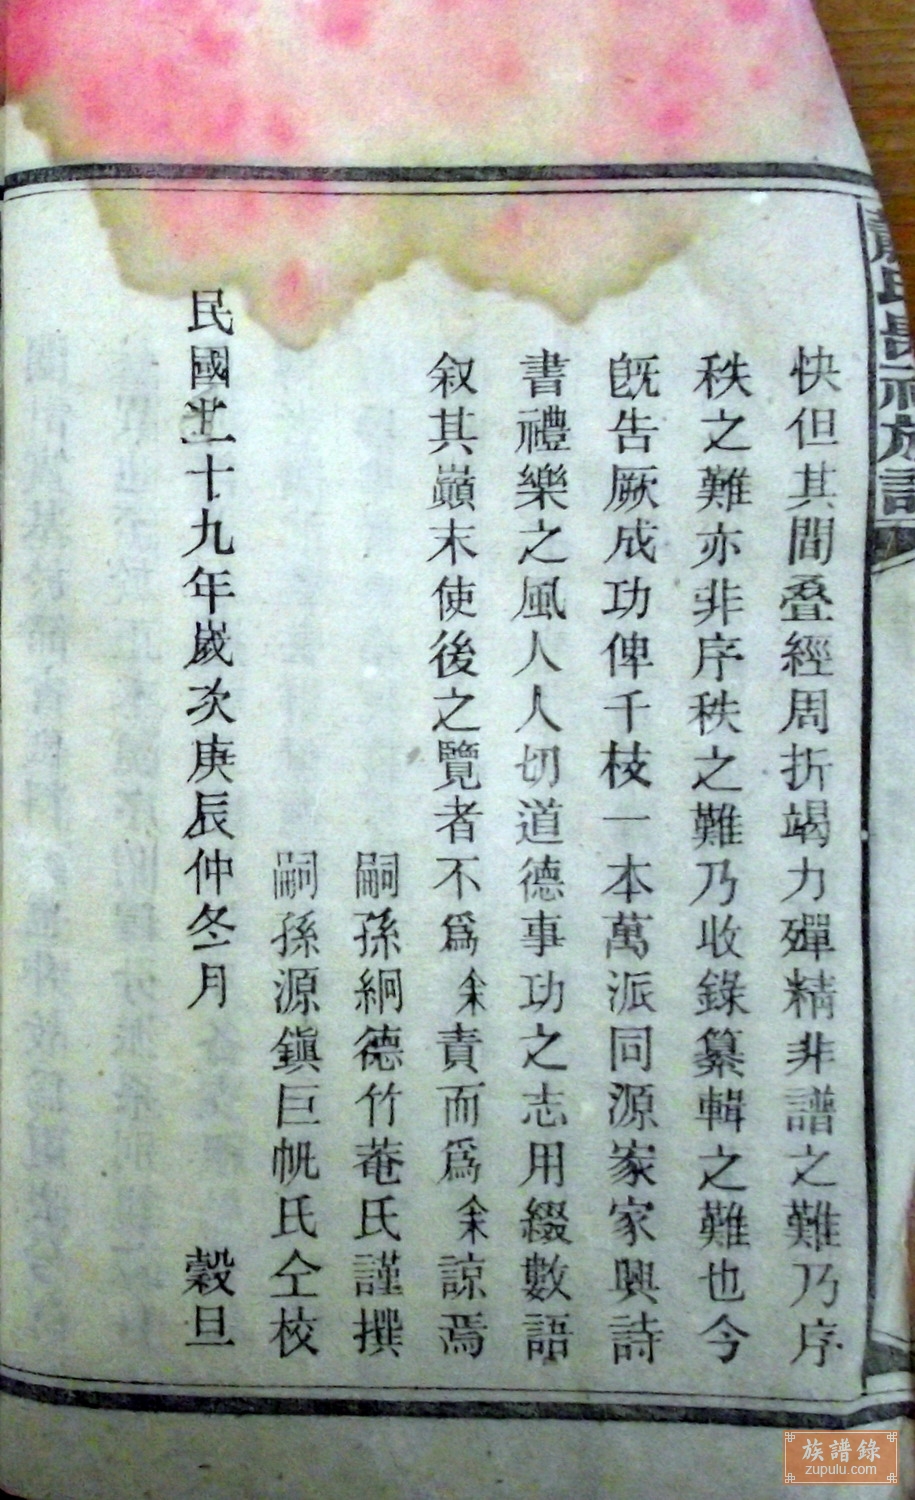 快但其間叠經周折竭力殫精非譜之難乃序
秩之難亦非序秩之難乃收錄纂輯之難也今
旣告厥成功俾千枝一本萬派同源家家興詩
書禮樂之風人人切道德事功之志用綴數語
叙其巔末使後之覽者不爲余責而爲余諒焉
嗣孫絅德竹菴氏謹撰
嗣孫源鎭巨帆氏仝校
民國二十九年歲次庚辰仲冬月 穀旦
氏長福族譜
族譜錄
zupulu.com